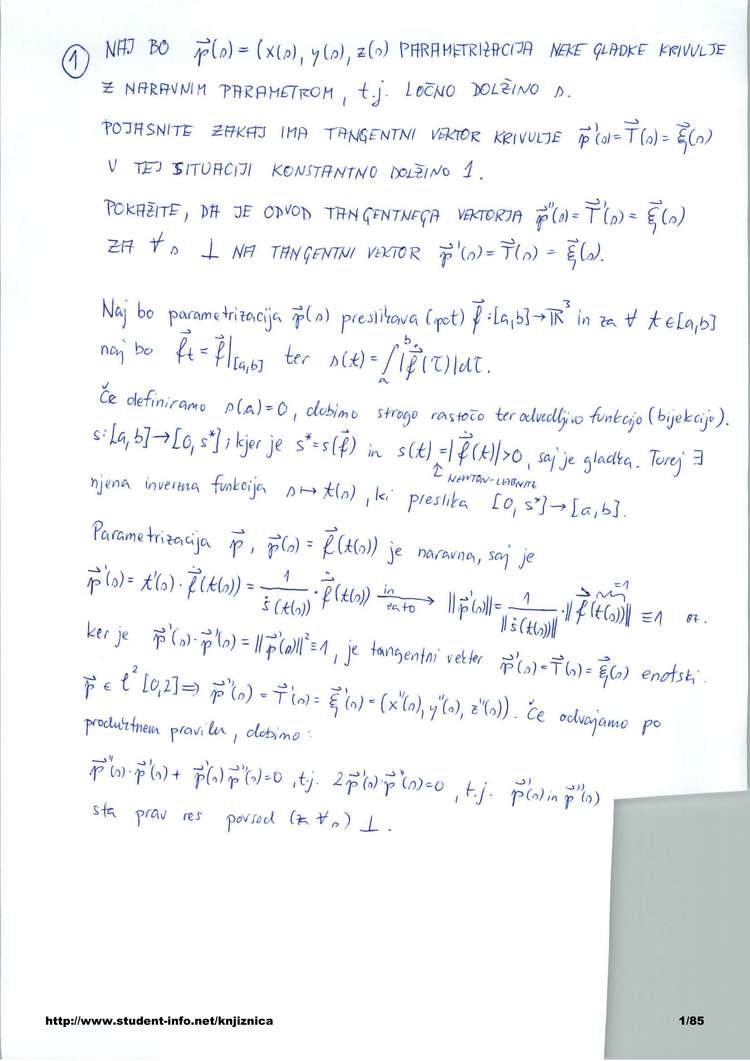 ① NAJ BO p⃗(s) = (x(s), y(s), z(s) PARAMETRIZACIJA NEKE GLADKE KRIVULJE
Z NARAVNIM PARAMETROM, t.j. LOČNO DOLŽINO s.
POJASNITE ZAKAJ IMA TANGENTNI VEKTOR KRIVULJE p⃗'(s)=T⃗(s)=ξ⃗(s)
V TEJ SITUACIJI KONSTANTNO DOLŽINO 1.
POKAŽITE, DA JE ODVOD TANGENTNEGA VEKTORJA p⃗''(s)=T⃗'(s)=ξ⃗(s)
ZA ∀ s ⊥ NA TANGENTNI VEKTOR p⃗'(s)=T⃗(s)=ξ⃗(s).
Naj bo parametrizacija p⃗(s) preslikava (pot) f⃗:[a,b]→ℝ³ in za ∀ t∈[a,b]
naj bo f⃗t = f⃗|[a,b] ter s(t) = ∫ₐᵇ|f⃗̇(τ)|dτ.
Če definiramo s(a)=0, dobimo strogo rastočo ter odvedljivo funkcijo (bijekcijo).
s:[a,b]→[0,s*]; kjer je s*=s(f⃗) in s(t)=|f⃗̇(t)|>0, saj je gladka. Torej ∃
↑ NEWTON-LEIBNITZ
njena inverzna funkcija s↦t(s), ki preslika [0,s*]→[a,b].
Parametrizacija p⃗, p⃗(s) = f⃗(t(s)) je naravna, saj je
p⃗'(s) = t'(s)·f⃗̇(t(s)) = 1/ṡ(t(s)) · f⃗̇(t(s)) in zato → ||p⃗'(s)|| = 1/||ṡ(t(s))|| · ||f⃗̇(t(s))|| ≡1 oz.
=1
ker je p⃗'(s)·p⃗'(s) = ||p⃗'(s)||²≡1, je tangentni vektor p⃗'(s)=T⃗(s)=ξ⃗(s) enotski.
p⃗ ∈ ℓ²[0,2] ⇒ p⃗''(s) = T⃗'(s) = ξ⃗'(s) = (x''(s), y''(s), z''(s)). Če odvajamo po
produktnem pravilu, dobimo:
p⃗''(s)·p⃗'(s) + p⃗'(s)p⃗''(s)=0, t.j. 2p⃗'(s)·p⃗''(s)=0, t.j. p⃗'(s) in p⃗''(s)
sta prav res povsod (za ∀s) ⊥.
http://www.student-info.net/knjiznica 1/85